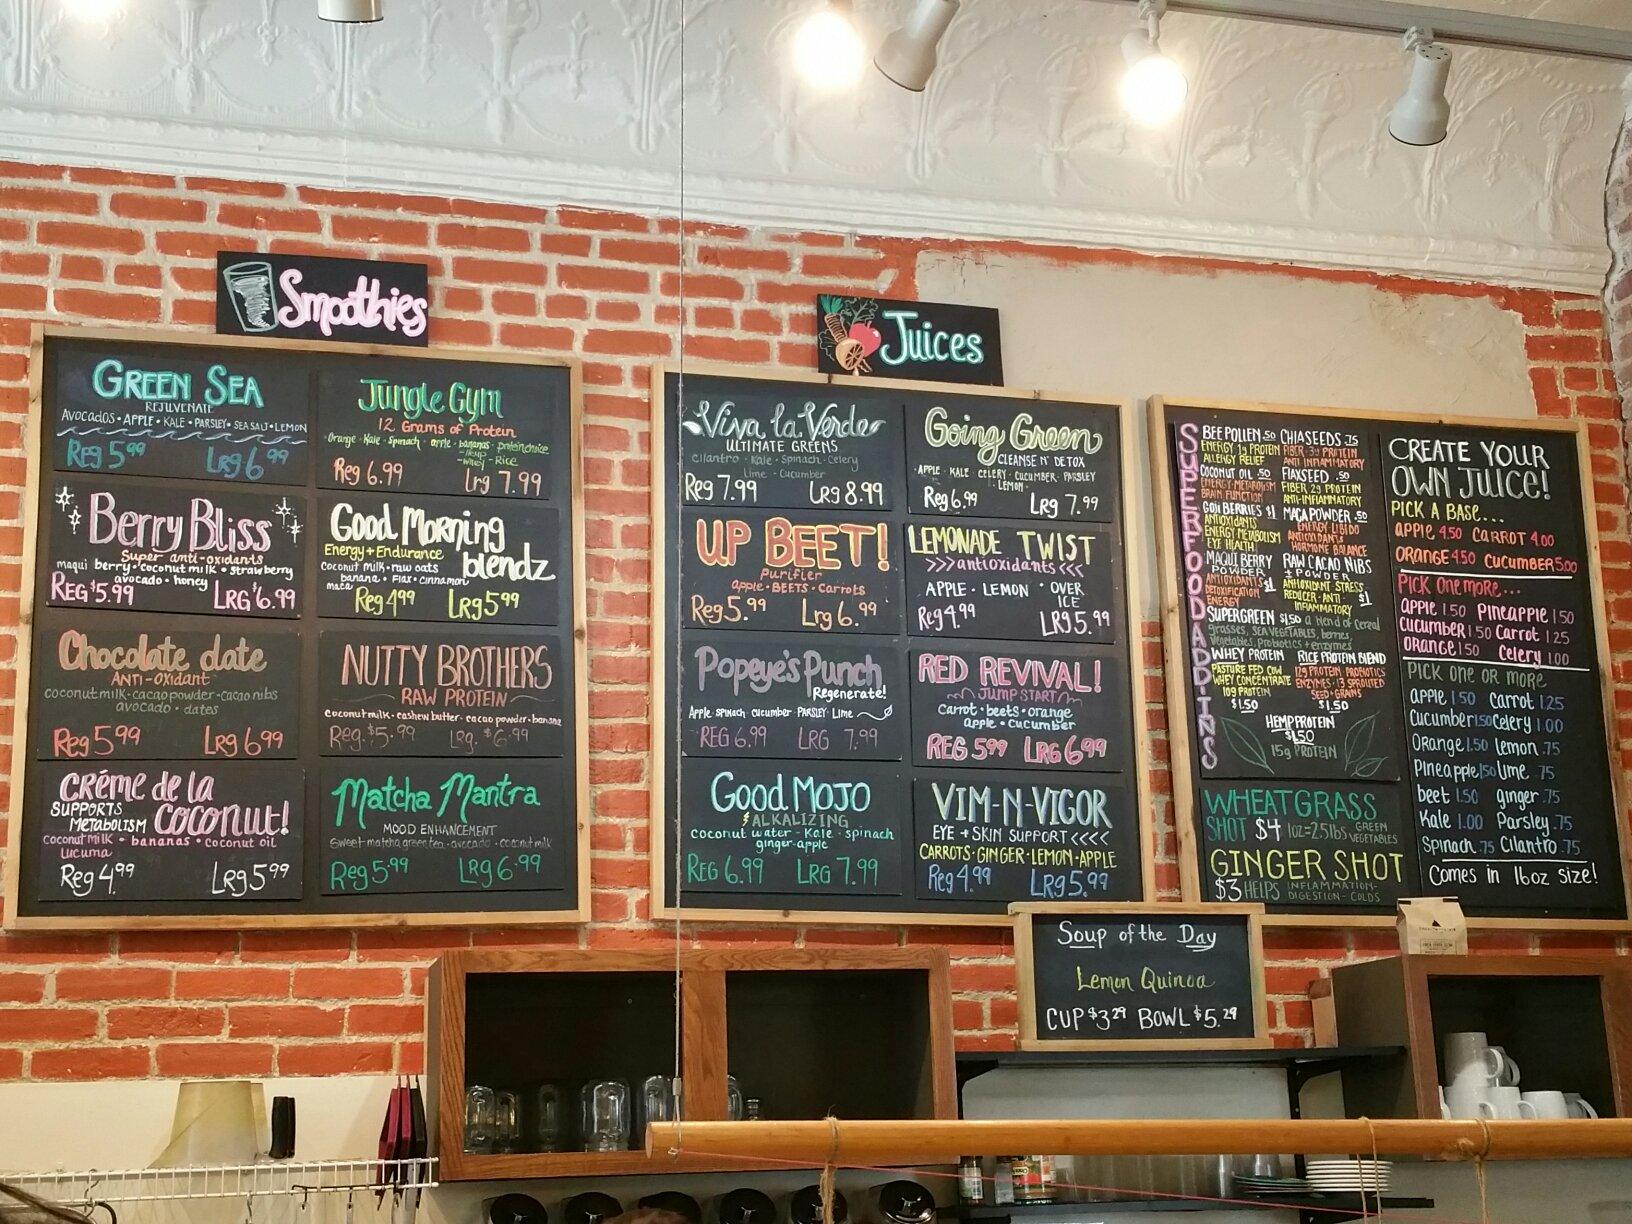 Smoothies
GREEN SEA
REJUVENATE
AVOCADOS • APPLE • KALE • PARSLEY • SEA SALT • LEMON
Reg 5.99 Lrg 6.99
Jungle Gym
12 Grams of Protein
Orange • Kale • spinach • apple • bananas • protein choice
-Hemp
-Whey -Rice
Reg 6.99 Lrg 7.99
Berry Bliss
Super anti-oxidants
maqui berry • coconut milk • strawberry
avocado • honey
REG $5.99 LRG $6.99
Good Morning
blendz
Energy + Endurance
coconut milk • raw oats
banana • Flax • cinnamon
maca
Reg 4.99 Lrg 5.99
Chocolate date
ANTI-OXIDANT
coconut milk • cacao powder • cacao nibs
avocado • dates
Reg 5.99 Lrg 6.99
NUTTY BROTHERS
RAW PROTEIN
coconut milk • cashew butter • cacao powder • banana
Reg. $5.99 Lrg. $6.99
Créme de la
Coconut!
SUPPORTS
METABOLISM
coconut milk • bananas • coconut oil
Lucuma
Reg 4.99 Lrg 5.99
Matcha Mantra
MOOD ENHANCEMENT
Sweet matcha green tea • avocado • coconut milk
Reg 5.99 Lrg 6.99
Juices
Viva la Verde
ULTIMATE GREENS
cilantro • Kale • Spinach • Celery
Lime • Cucumber
Reg 7.99 Lrg 8.99
Going Green
CLEANSE N' DETOX
APPLE • KALE • CELERY • CUCUMBER • PARSLEY
LEMON
Reg 6.99 Lrg 7.99
UP BEET!
Purifier
apple • BEETS • Carrots
Reg 5.99 Lrg 6.99
LEMONADE TWIST
>>>antioxidants<<<
APPLE • LEMON • OVER
ICE
Reg 4.99 LRG 5.99
Popeye's Punch
Regenerate!
Apple spinach cucumber PARSLEY Lime
REG 6.99 LRG 7.99
RED REVIVAL!
JUMP START
Carrot • beets • orange
apple • cucumber
REG 5.99 LRG 6.99
Good Mojo
ALKALIZING
coconut water - Kale • spinach
ginger • apple
REG 6.99 LRG 7.99
VIM-N-VIGOR
EYE + SKIN SUPPORT <<<<
CARROTS • GINGER • LEMON • APPLE
Reg 4.99 LRG 5.99
SUPERFOOD ADD INS
BEE POLLEN .50
ENERGY 1g PROTEIN
ALLERGY RELIEF
COCONUT OIL .50
ENERGY • METABOLISM
BRAIN FUNCTION
GOJI BERRIES $1
ANTIOXIDANTS
ENERGY METABOLISM
EYE HEALTH
MAQUI BERRY
POWDER $1
ANTIOXIDANTS
DETOXIFICATION
ENERGY
CHIASEEDS .75
FIBER • 3g PROTEIN
ANTI INFLAMMATORY
FLAXSEED .50
FIBER 2g PROTEIN
ANTI-INFLAMMATORY
MACA POWDER .50
ENERGY LIBIDO
ANTIOXIDANTS
HORMONE BALANCE
RAW CACAO NIBS
+ POWDER
ANTIOXIDANT • STRESS
REDUCER • ANTI- $1
INFLAMMATORY
SUPERGREEN $1.50 a blend of cereal
grasses, SEA VEGETABLES, berries,
vegetables, probiotics + enzymes
WHEY PROTEIN
PASTURE FED COW
WHEY CONCENTRATE
10g PROTEIN
$1.50
RICE PROTEIN BLEND
12g PROTEIN, PROBIOTICS
ENZYMES • 13 SPROUTED
SEED • GRAINS
$1.50
HEMP PROTEIN
$1.50
15g PROTEIN
WHEATGRASS
SHOT $4 1oz=2.5lbs GREEN
VEGETABLES
GINGER SHOT
$3 HELPS INFLAMMATION-
DIGESTION - COLDS
CREATE YOUR
OWN JUICE!
PICK A BASE...
APPLE 4.50 CARROT 4.00
ORANGE 4.50 CUCUMBER 5.00
PICK One more...
apple 1.50 Pineapple 1.50
cucumber 1.50 Carrot 1.25
orange 1.50 Celery 1.00
PICK ONE OR MORE
apple 1.50 Carrot 1.25
Cucumber 1.50 Celery 1.00
Orange 1.50 Lemon .75
Pineapple 1.50 Lime .75
beet 1.50 ginger .75
Kale 1.00 Parsley .75
Spinach .75 Cilantro .75
Comes in 16oz size!
Soup of the Day
Lemon Quinoa
CUP $3.29 BOWL $5.29